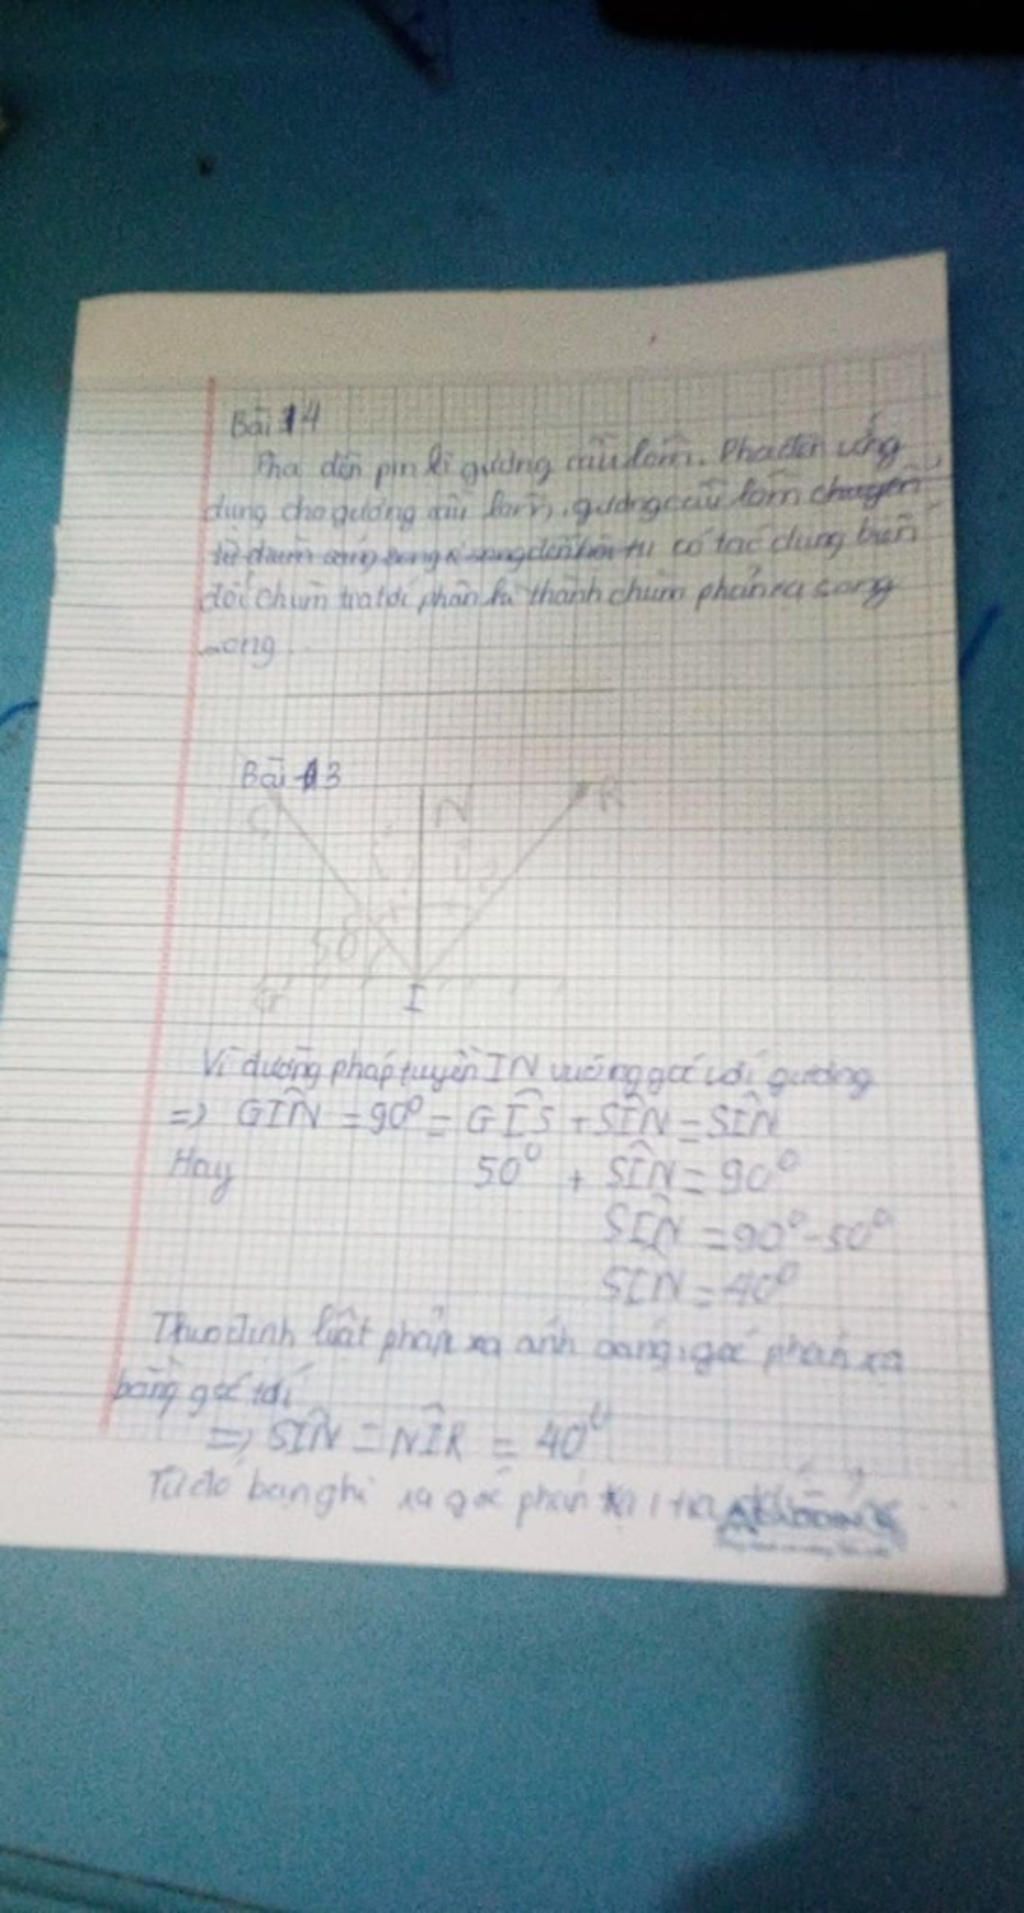 Bài 14
Pha đèn pin là gương cầu lõm. Pha đèn ứng
dụng cho gương cầu lõm, gương cầu lõm chuyển
có tác dụng biến
đổi chùm tia tới phân kì thành chùm phản xạ song
song
Bài 13
S N R
50
G I
Vì đường pháp tuyến IN vuông góc với gương
=> GIN = 90° = GIS + SIN = SIN
Hay 50° + SIN = 90°
SIN = 90° - 50°
SIN = 40°
Theo định luật phản xạ ánh sáng, góc phản xạ
bằng góc tới
=> SIN = NIR = 40°
Từ đó bạn ghi ra góc phản xạ